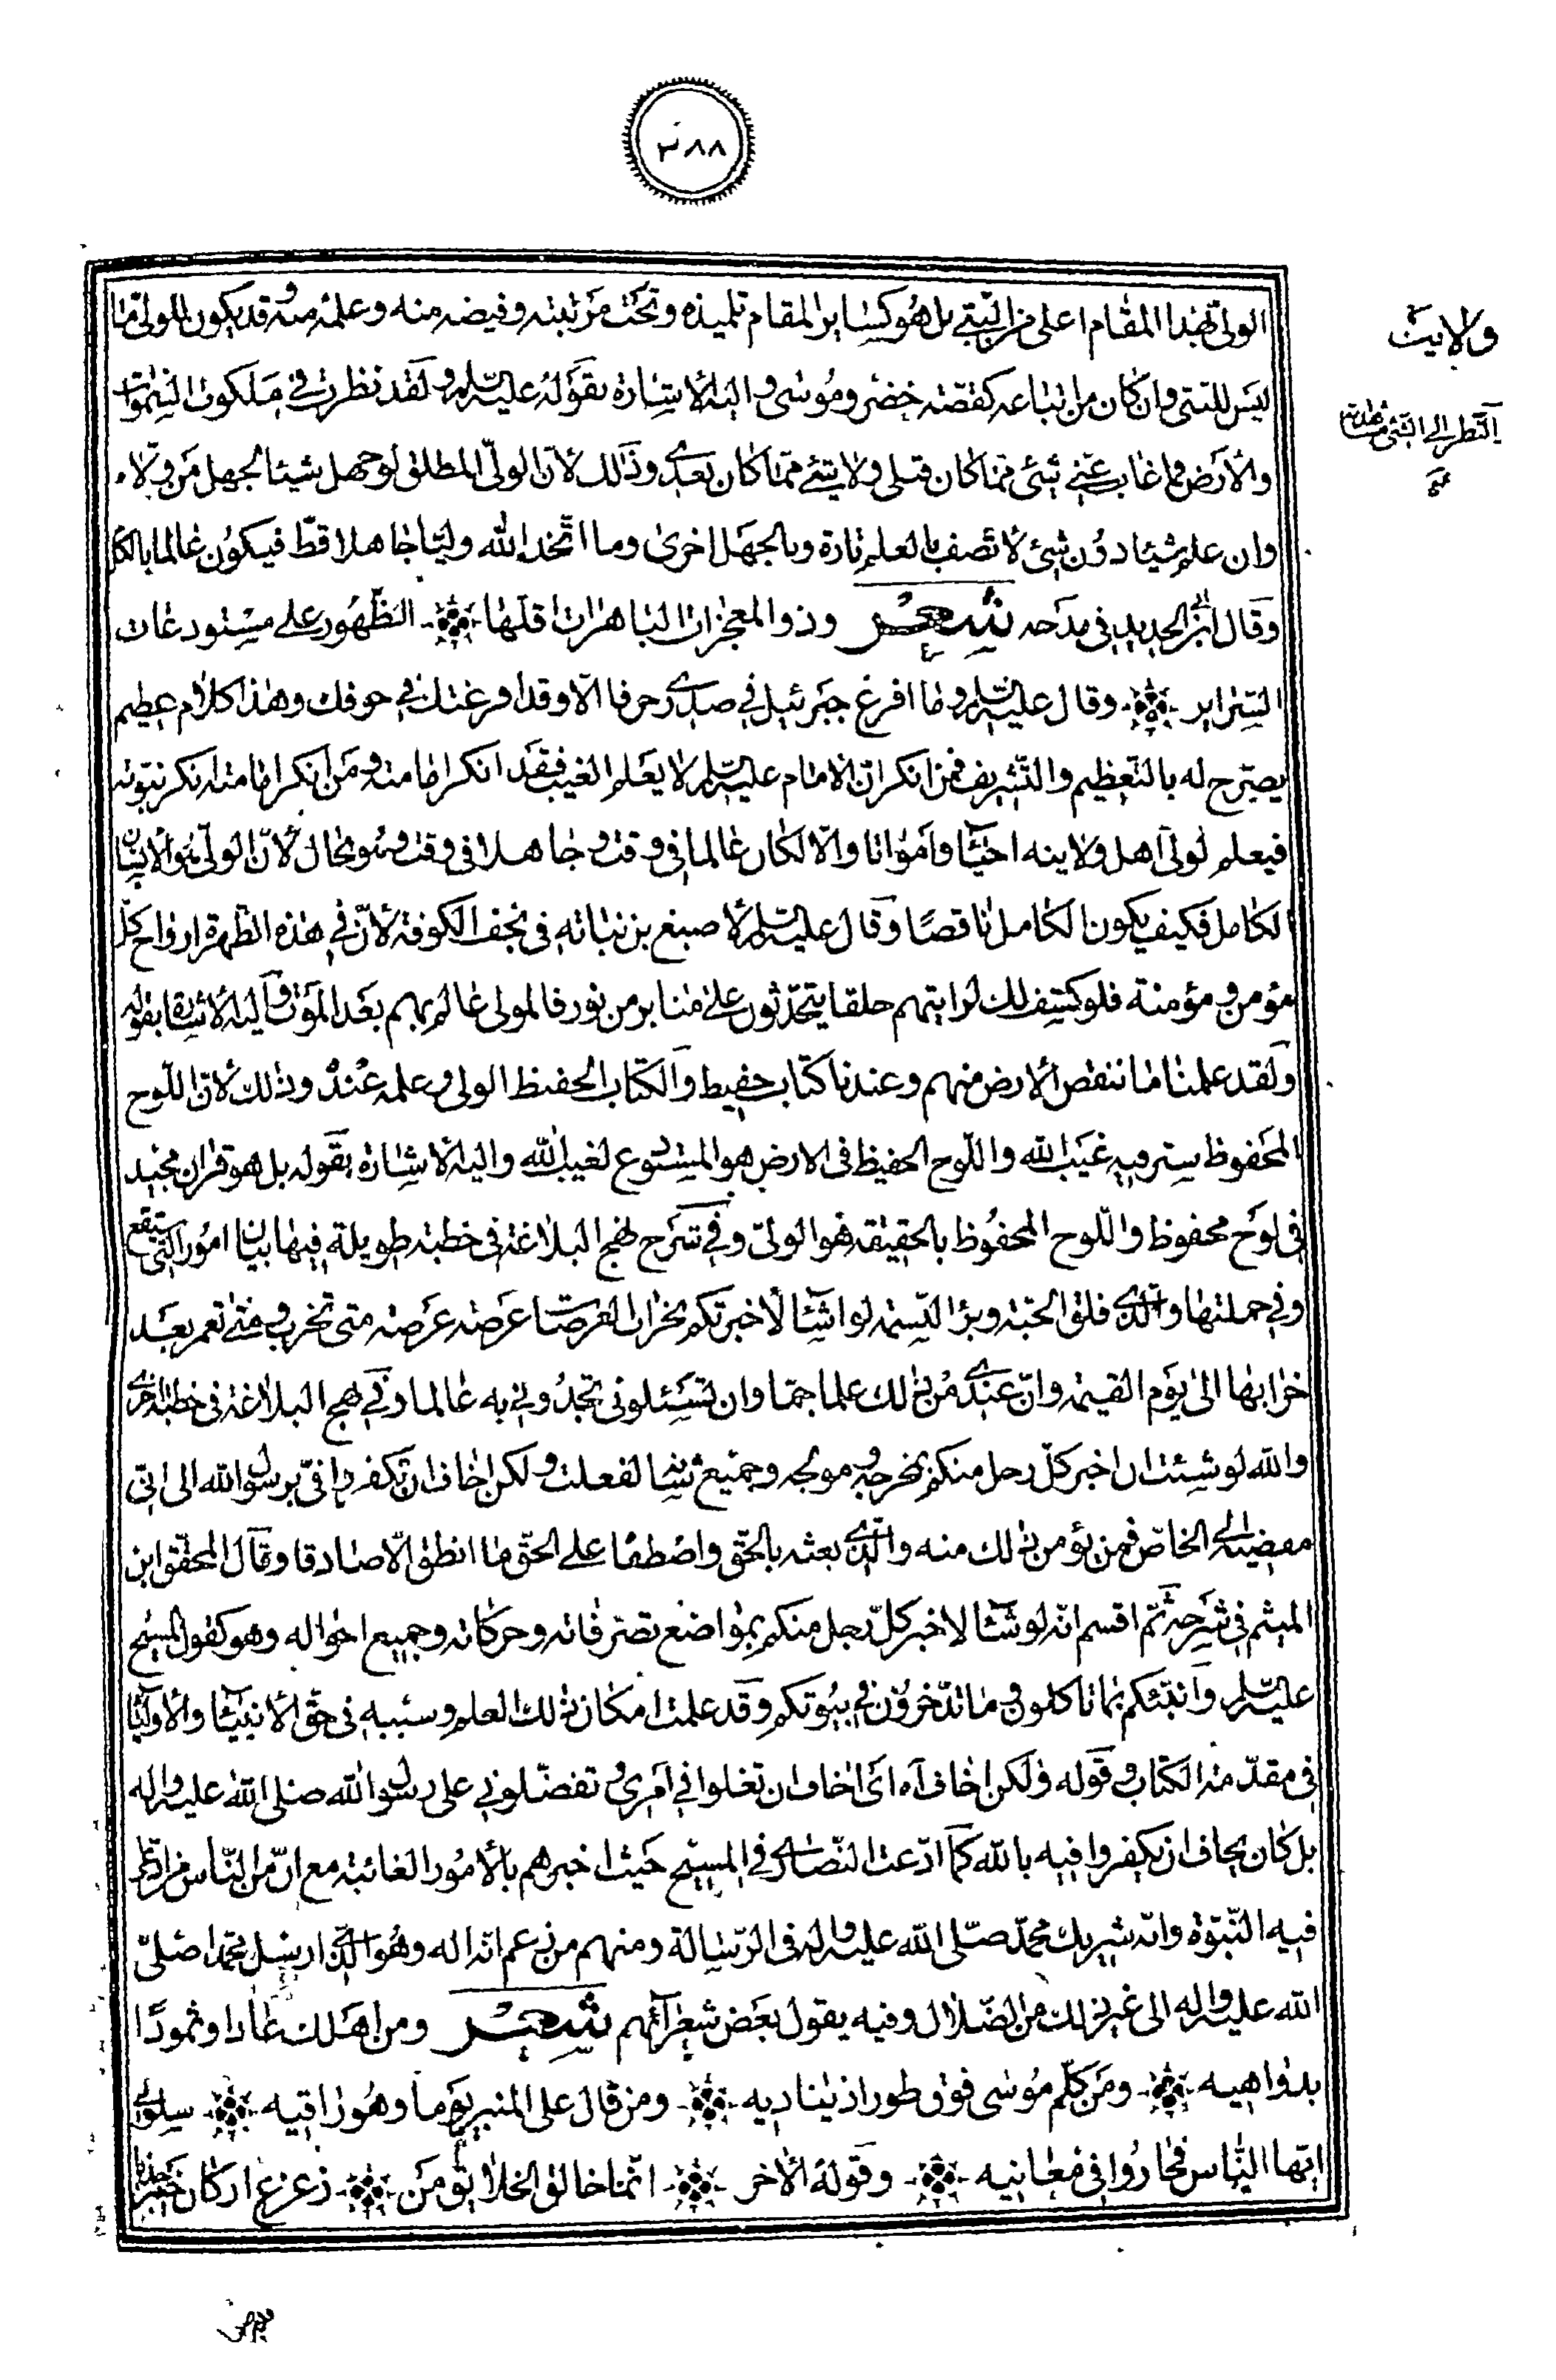 ٣٨٨
الولى بهذا المقام اعلى من النّبى بل هو كساير المقام تلميذه وتحت مرتبته وفيضه منه وعلمه منه وقد يكون للولى ما
ليس للنبى وان كان من اتباعه كقصّة خضر وموسى واليه الاشارة بقوله عليه السلم ولقد نظرت فى ملكوت السّموات
والارض فما غاب عنّى شئ ممّا كان قبلى ولا شئ ممّا كان بعدى وذلك لانّ الولىّ المطلق لو جهل شيئا لجهل من ولّاه
وان علم شيئا دون شئ لاتّصف بالعلم تارة وبالجهل اخرى وما اتّخذ الله وليّا جاهلا قطّ فيكون عالما بالكل
وقال ابن ابى الحديد فى مدحه شعر وذو المعجزات الباهرات اقلّها الظّهور على مستودعات
السّراير وقال عليه السلم وما افرغ جبرئيل فى صدرى حرفا الّا وقد افرغته فى جوفك وهذا كلام عظيم
يصرّح له بالتّعظيم والتّشريف فمن انكر انّ الامام عليه السلم لا يعلم الغيب فقد انكر امامته ومن انكر امامته انكر نبوّته
فيعلم الولىّ اهل ولايته احيآء وامواتا والّا لكان عالما فى وقت وجاهلا فى وقت وهو محال لانّ الولىّ هو الانسان
الكامل فكيف يكون الكامل ناقصًا وقال عليه السلم لاصبغ بن نباته فى نجف الكوفة لانّ فى هذه الظّهرة ارواح كلّ
مؤمن ومؤمنة فلو كشف لك لرايتهم حلقا يتحدّثون على منابر من نور فالمولى عالم بهم بعد الموت واليه الاشارة بقوله
ولقد علمنا ما تنقص الارض منهم وعندنا كتاب حفيظ والكتاب الحفيظ الولى وعلمه عنده وذلك لانّ اللّوح
المحفوظ ستر فيه غيب الله واللّوح الحفيظ فى الارض هو المستودع لغيب الله واليه الاشارة بقوله بل هو قران مجيد
فى لوح محفوظ واللّوح المحفوظ بالحقيقة هو الولىّ وفى شرح نهج البلاغة فى خطبة طويلة فيها بيان امور التى ستقع
وفى جملتها والّذى فلق الحبّة وبرا النّسمة لو اشآء لاخبرتكم بخراب العرصات عرصة عرصة متى تخرب ومتى تعمر بعد
خرابها الى يوم القيمة وانّ عندى من ذلك علما جمّا وان تسئلونى تجدونى به عالما وفى نهج البلاغة فى خطبة اخرى
والله لو شئت ان اخبر كلّ رجل منكم بمخرجه ومولجه وجميع شانه لفعلت ولكن اخاف ان تكفروا فىّ برسول الله الى انّى
مفضيه الى الخاصّة ممّن يؤمن ذلك منه والّذى بعثه بالحقّ واصطفاه على الخلق ما انطق الّا صادقا وقال المحقّق ابن
الميثم فى شرحه ثمّ اقسم انّه لو شآء لاخبر كلّ رجل منكم بمواضع تصرّفاته وحركاته وجميع احواله وهو كقول المسيح
عليه السلم وانبّئكم بما تاكلون وما تدّخرون فى بيوتكم وقد علمت امكان ذلك العلم وسببه فى حقّ الانبيآء والاوليآء
فى مقدّمة الكتاب وقوله ولكن اخاف آه اى اخاف ان تغلوا فى امرى وتفضّلونى على رسول الله صلى الله عليه واله
بل كان يخاف ان يكفروا فيه بالله كما ادّعت النّصارى فى المسيح حيث اخبرهم بالامور الغائبة مع انّ من النّاس من ادّعى
فيه النّبوّة وانّه شريك محمّد صلّى الله عليه واله فى الرّسالة ومنهم من زعم انّه اله وهو الّذى ارسل محمّدا صلّى
الله عليه واله الى غير ذلك من الضّلال وفيه يقول بعض شعرآئهم شعر ومن اهلك عادا وثمودًا
بدواهيه ومن كلّم موسى فوق طور اذ يناديه ومن قال على المنبر يوما وهو راقيه سلونى
ايّها النّاس فحاروا فى معانيه وقوله الاخر انّما خالق الخلايق من زعزع اركان خيبر جذبا
ولايته
النّظر الى الشئ مشاهدته